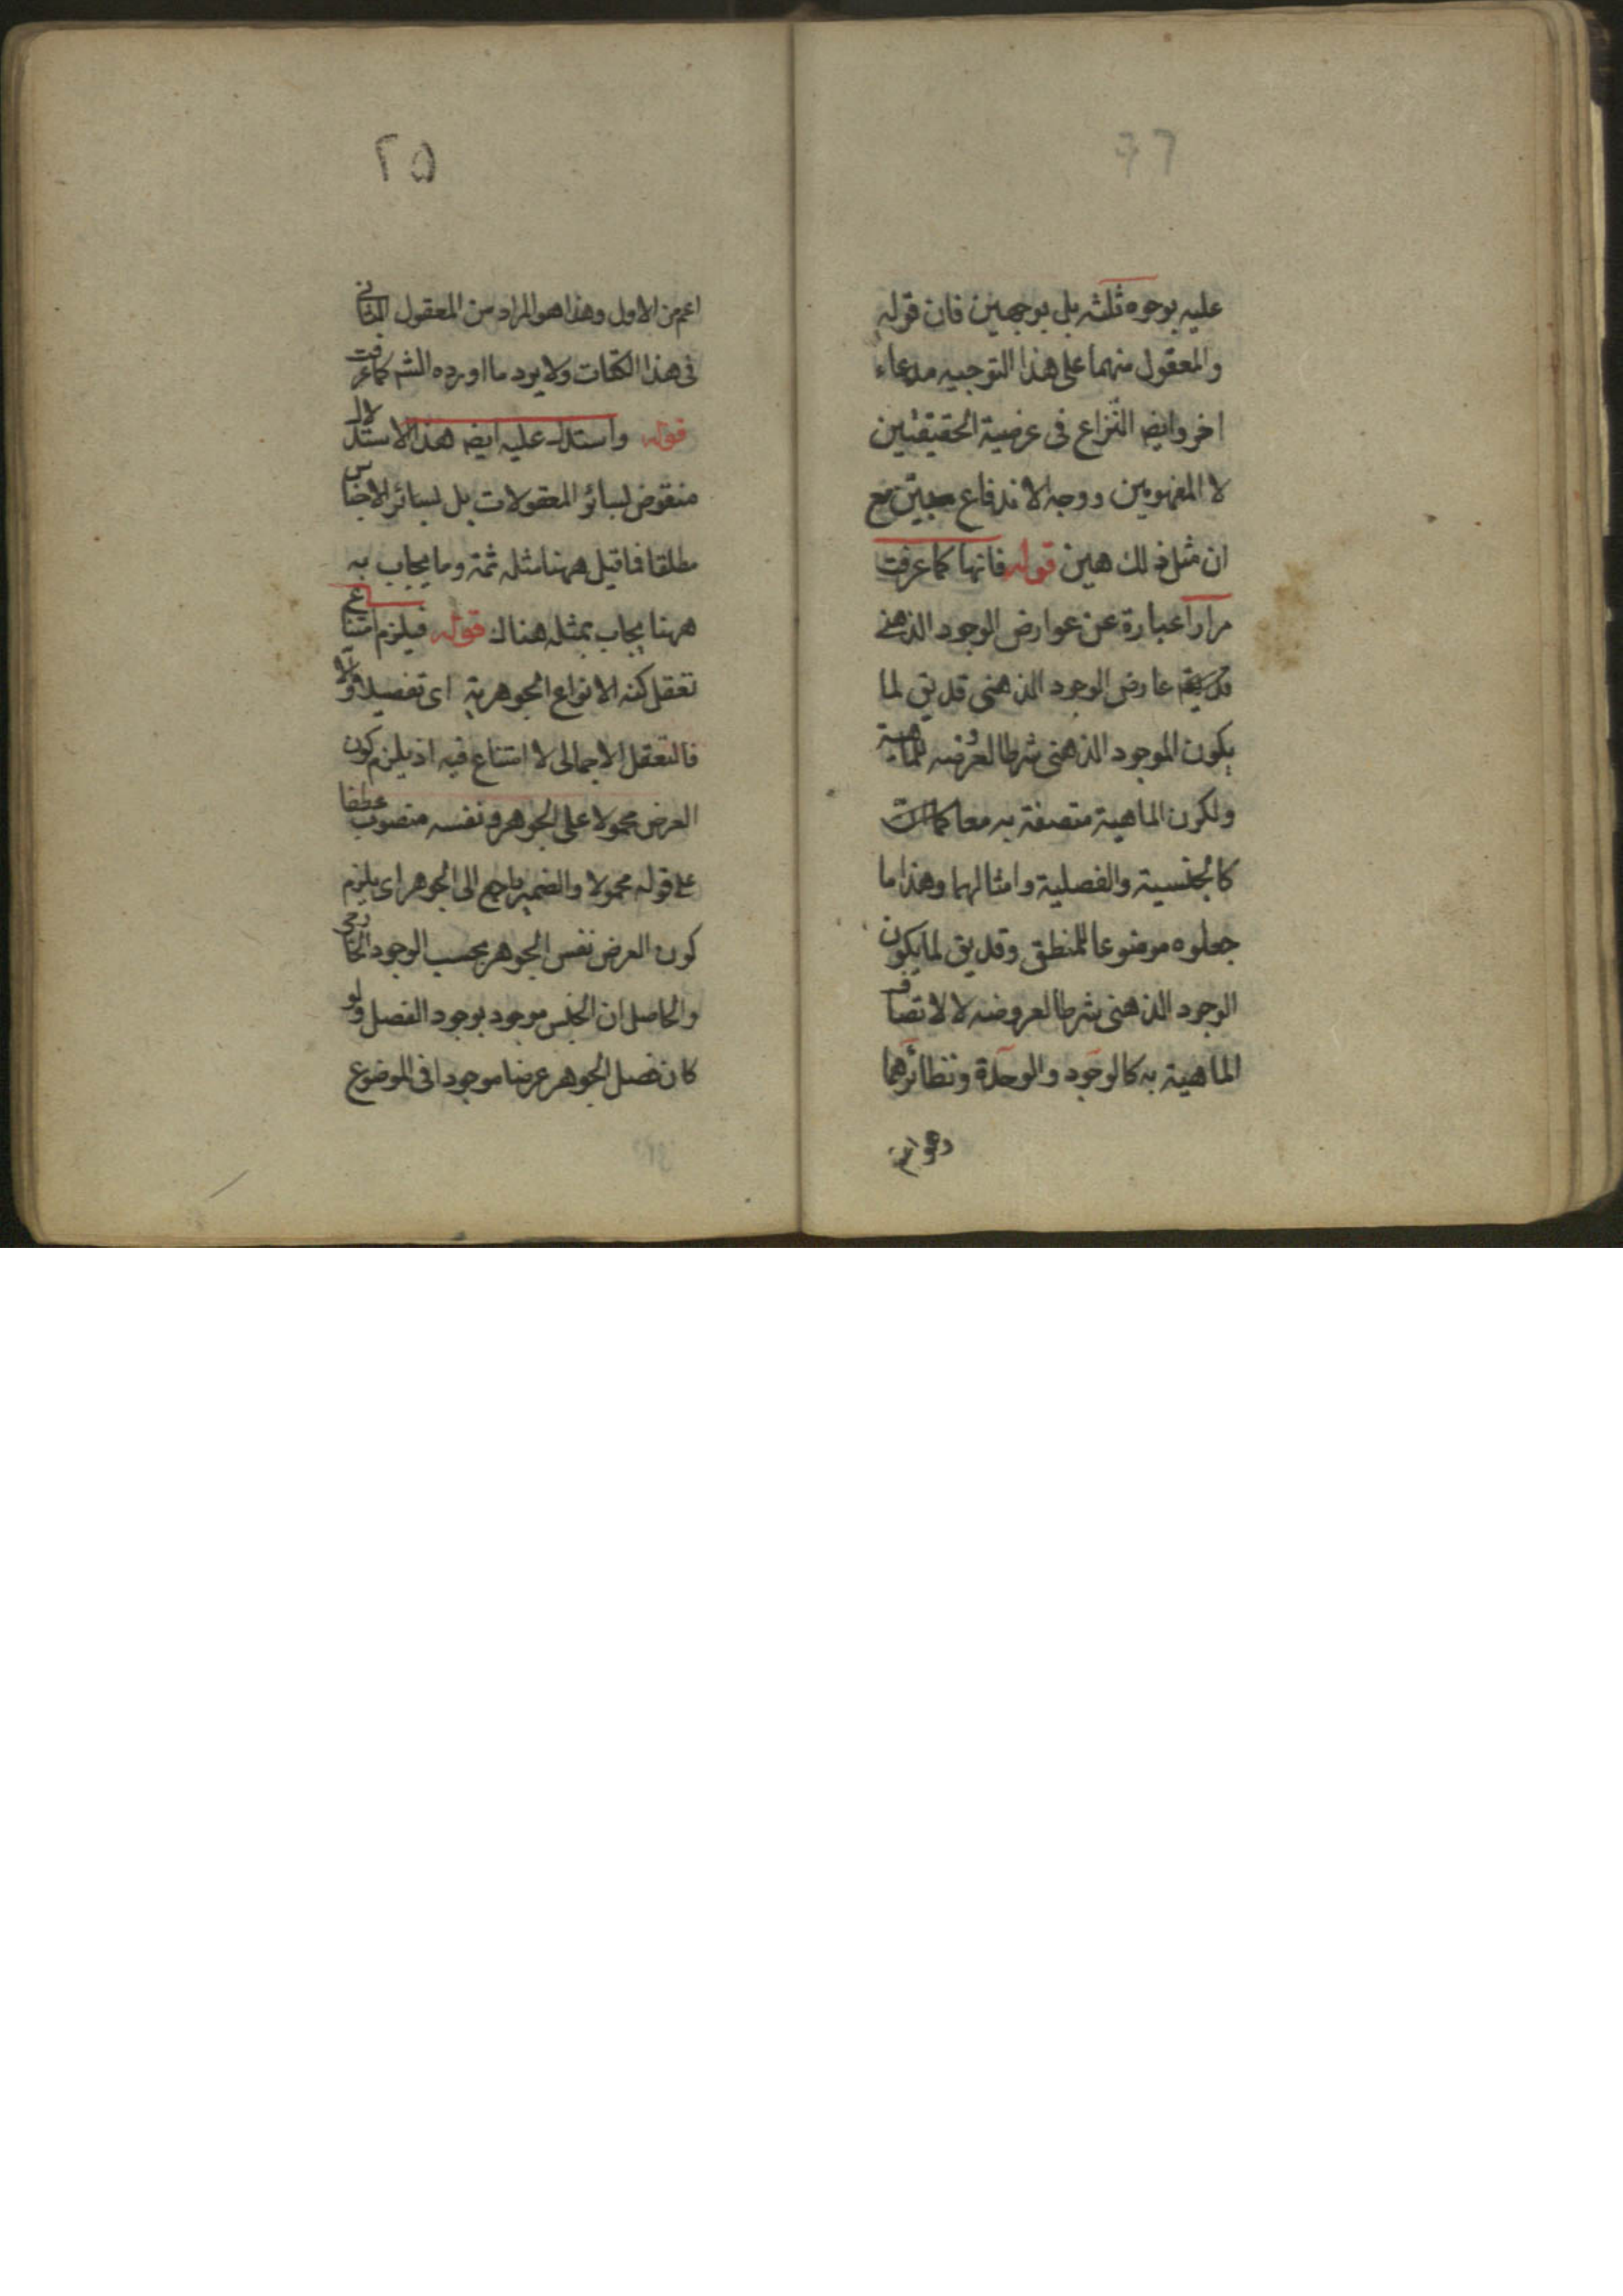 عليه بوجوه ثلثه بل بوجهين فان قوله
والمعقول منهما على هذا التوجيه مدعاء
اخر وايضا النزاع فى عرضية الحقيقتين
لا المفهومين ووجه الاندفاع مع
ان مثل ذلك هين قوله فانها كما عرفت
مرارا عبارة عن عوارض الوجود الذهنى
عارض الوجود الذهنى قد يق لما
يكون الموجود الذهنى شرطا لعروضه للماهية
ولكون الماهية متصفة به معا
كالجنسية والفصلية وامثالهما وهذا ما
جعلوه موضوعا للمنطق وقد يق لما يكون
الوجود الذهنى شرطا لعروضه لا لاتصاف
الماهية به كالوجود والوحدة ونظائرهما
وهو اعم
٢٥
اعم من الاول وهذا هو المراد من المعقول الثانى
فى هذا الكتاب ولا يرد ما اورده الشم كما عرفت
قوله واستدل عليه ايضا هذا الاستدلال
منقوض لسائر المعقولات بل لسائر الاجناس
مطلقا فما قيل ههنا مثله ثمة وما يجاب به
ههنا يجاب بمثله هناك قوله فيلزم امتناع
تعقل كنه الانواع الجوهرية اى تفصيلا والا
فالتعقل الاجمالى لا امتناع فيه اذ يلزم كون
العرض محمولا على الجوهر ونفسه منصوب عطفا
على قوله محمولا والضمير راجع الى الجوهر اى يلزم
كون العرض نفس الجوهر بحسب الوجود الخارجى
والحاصل ان الجنس موجود بوجود الفصل ولو
كان فصل الجوهر عرضا موجودا فى الموضوع